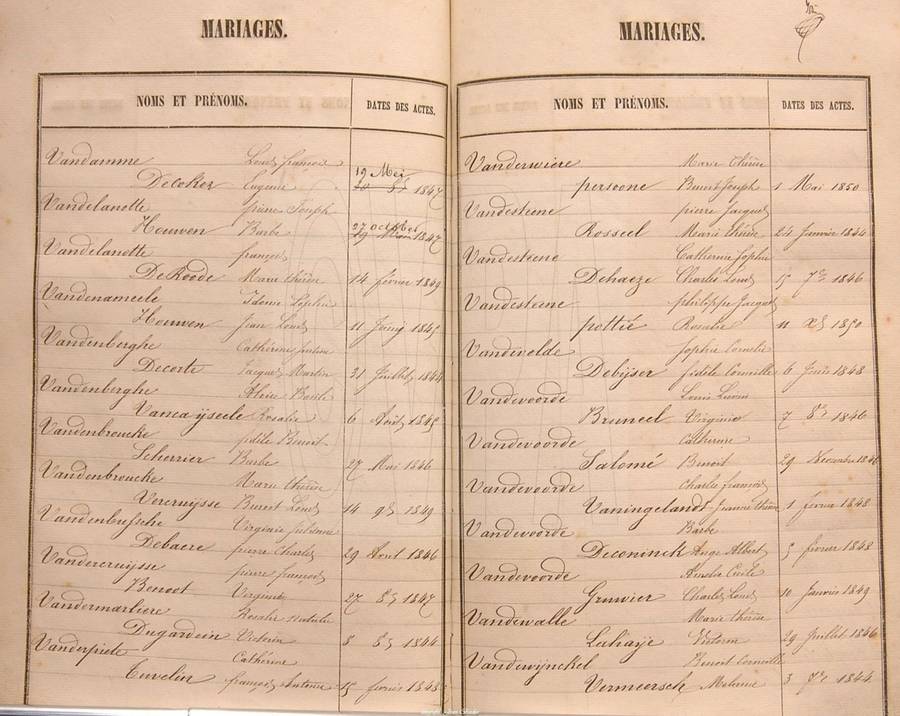 MARIAGES.
NOMS ET PRÉNOMS. DATES DES ACTES.
Vandamme Louis françois
Decoker Eugénie 19 Mai 1847
Vandelanotte pierre Joseph
Houwen Barbe 27 octobre 1847
Vandelanotte françois
DeRoode Marie thérèse 14 février 1849
Vandenameele Idonie Sophie
Houwen Jean Louis 11 Juin 1845
Vandenberghe Catherine
Decorte Jacques Martin 31 Juillet 1844
Vandenberghe Basile
Vancaijseele Rosalie 6 Août 1845
Vandenbroucke Benoit
Scherrier Barbe 27 Mai 1846
Vandenbroucke Marie thérèse
Vercruijsse Benoit Louis 14 9bre 1849
Vandenbussche Virginie Julienne
Debaere pierre Charles 29 Aout 1846
Vandercruijsse pierre françois
Benoot Virginie 27 8bre 1847
Vandermarliere Rosalie Natalie
Dugardein Victorin 8 8bre 1844
Vanderpiete Catherine
Tuvelin françois Antoine 15 février 1848
MARIAGES.
NOMS ET PRÉNOMS. DATES DES ACTES.
Vanderwiere Marie thérèse
persoone Benoit Joseph 1 Mai 1850
Vandesteene pierre Jacques
Rosseel Marie thérèse 24 Janvier 1844
Vandesteene Catherine Sophie
Dehaeze Charles Louis 15 7bre 1846
Vandesteene philippe Jacques
pottié Rosalie 11 Xbre 1850
Vandevelde Sophie Cornelie
Debijser fidele Corneille 6 1848
Vandevoorde Louis
Bruneel Virginie 7 8bre 1846
Vandevoorde Catherine
Salomé Benoit 29 Novembre 1846
Vandevoorde Charles françois
Vaningelandt Jeanne thérèse 1 fevrier 1848
Vandevoorde Barbe
Deconinck Ange Albert 5 fevrier 1848
Vandevoorde Amelie Cecile
Gruwier Charles Louis 10 Janvier 1849
Vandewalle Marie thérèse
Lahaije Victorin 29 Juillet 1846
Vandewijnckel Benoit Corneille
Vermeersch Melanie 3 7bre 1844